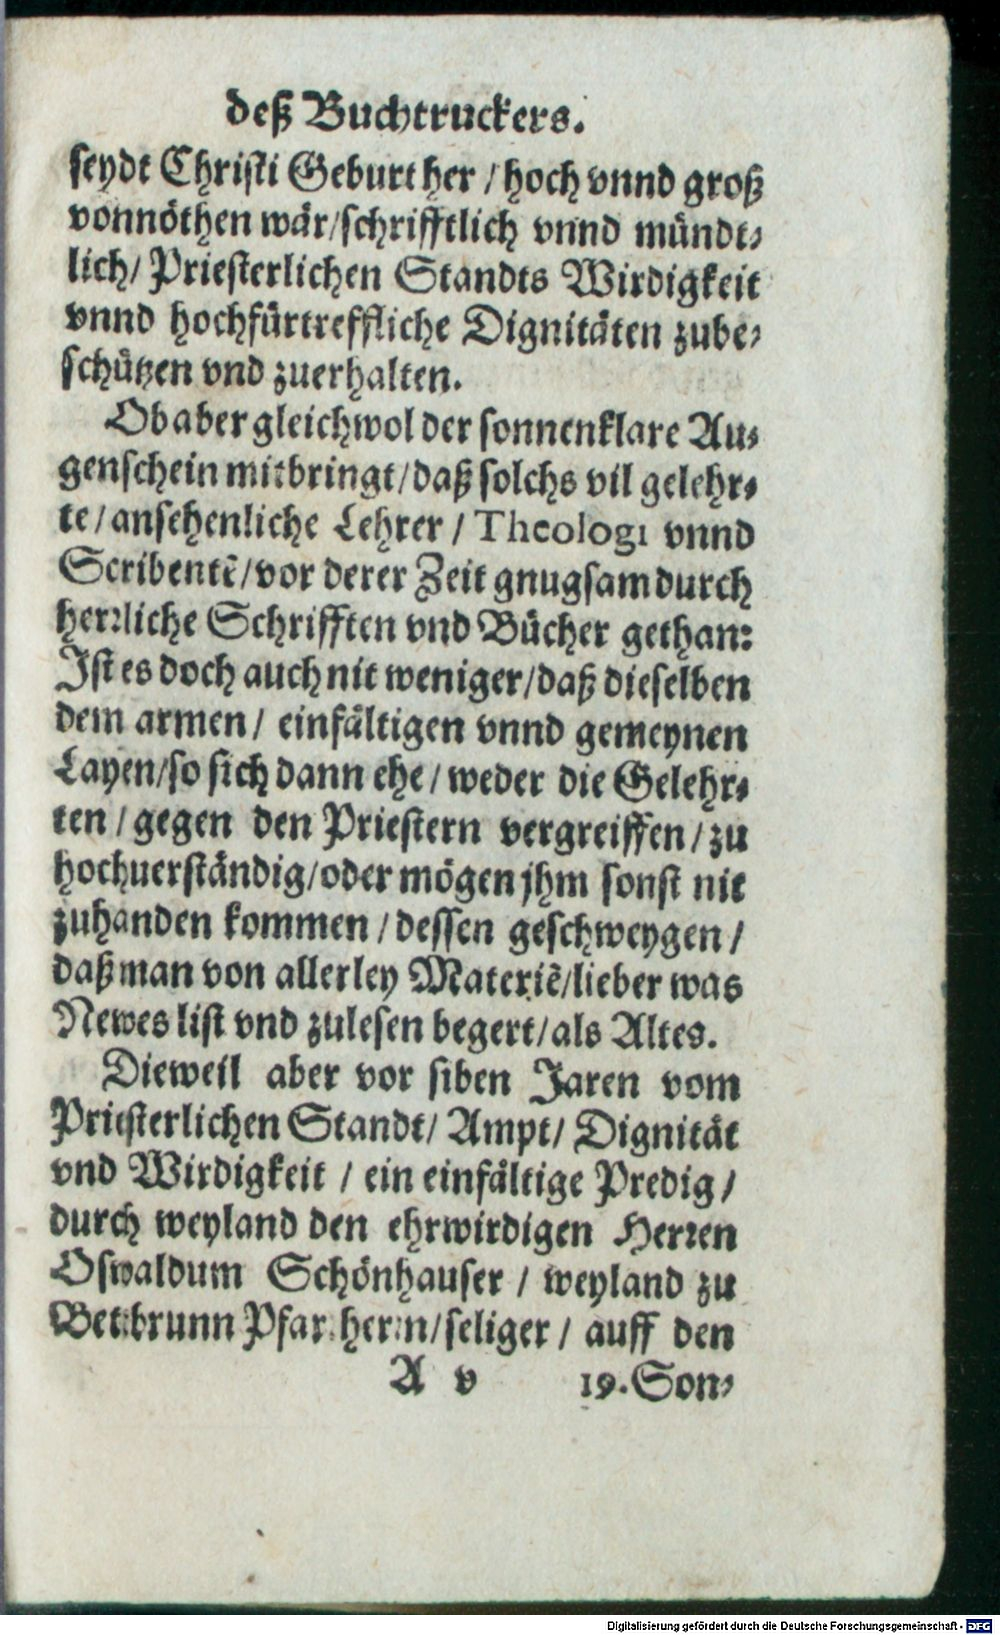 deß Buchtruckers.
seydt Christi Geburt her / hoch vnnd groß
vonnöthen wär/schrifftlich vnnd mündt-
lich/ Priesterlichen Standts Wirdigkeit
vnnd hochfürtreffliche Dignitäten zube-
schützen vnd zuerhalten.
Ob aber gleichwol der sonnenklare Au-
genschein mitbringt/daß solchs vil gelehr-
te/ansehenliche Lehrer / Theologi vnnd
Scribentẽ/vor derer Zeit gnugsam durch
herrliche Schrifften vnd Bücher gethan:
Ist es doch auch nit weniger/daß dieselben
dem armen/ einfältigen vnnd gemeynen
Layen/so sich dann ehe/ weder die Gelehr-
ten / gegen den Priestern vergreiffen/ zu
hochuerständig/oder mögen jhm sonst nit
zuhanden kommen / dessen geschweygen /
daß man von allerley Materiẽ/lieber was
Newes list vnd zulesen begert/als Altes.
Dieweil aber vor siben Jaren vom
Priesterlichen Standt/ Ampt/ Dignität
vnd Wirdigkeit / ein einfältige Predig /
durch weyland den ehrwirdigen Herren
Oswaldum Schönhauser / weyland zu
Betbrunn Pfarrherrn/seliger / auff den
A v 19. Son-
Digitalisierung gefördert durch die Deutsche Forschungsgemeinschaft - DFG